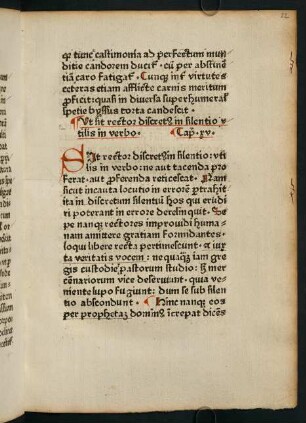 22
qꝛ tunc castimonia ad perfectum mun
ditie candorem ducit᷑. cū per abstinē
tiā caro fatigat᷑. Cunqꝫ int᷑ virtutes
ceteras etiam afflicte carnis meritum
proficit: quasi in diversa superhumerał
specie byssus torta candescit.
Ut sit rector discretꝰ in silentio v
tilis in verbo. Cap. xv.
Sit rector discretꝰ in silentio: vti
lis in verbo: ne aut tacenda pro
ferat. aut ꝓferenda reticescat. Nam
sicut incauta locutio in errorē ꝑtrahit
ita in discretum silentiū hos qui erudi
ri poterant in errore derelinquit. Se
pe nanqꝫ rectores improvidi huma
nam amittere gratiam formidantes.
loqui libere recta pertimescunt. et iux
ta veritatis vocem: nequaqꝫ iam gre
gis custodie pastorum studio: sꝫ mer
cenariorum vice deserviunt. quia ve
niente lupo fugiunt: dum se sub silen
tio abscondunt. Hinc nanqꝫ eos
per prophetaꝫ dominꝰ īcrepat dicēs